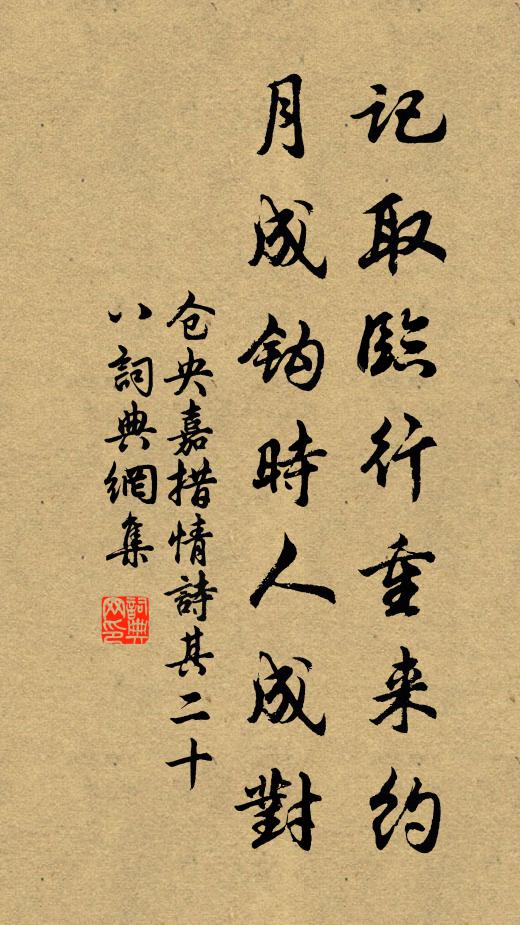 記取臨行重来约
月成钩時人成對
仓央嘉措情詩其二十
八詞典網集
詞典
网印